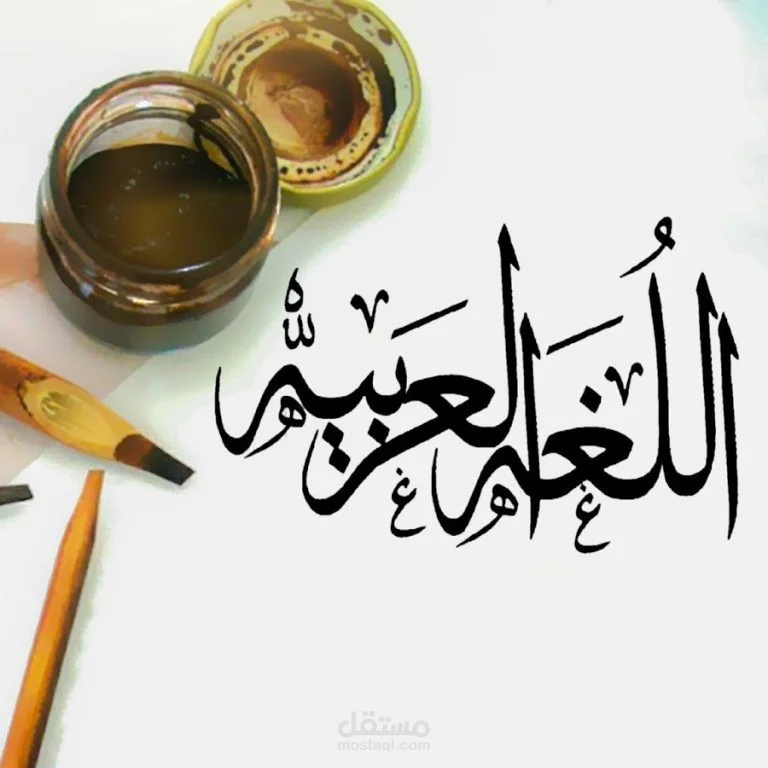 اللُغه العَربيّه
مستقل
mostaql.com